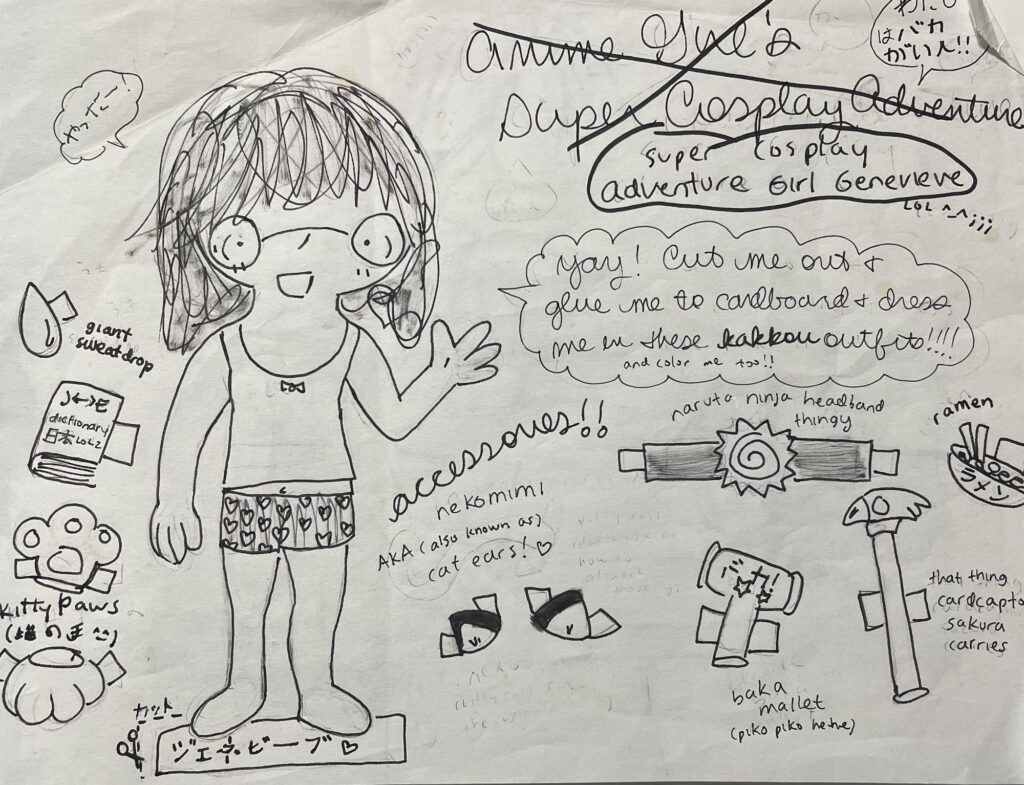 anime Girl's
Super Cosplay Adventure
super cosplay
adventure Girl Genevieve
LOL ^_^;;;
わたし
はバカ
がいん!!
ヤッター!
Yay! Cut me out +
glue me to cardboard + dress
me in these kakkou outfits!!!!
and color me too!!
giant
sweatdrop
J↔E
dictionary
日本
accessories!!
nekomimi
AKA (also known as)
cat ears! ♡
naruto ninja headband
thingy
ramen
ラメン
Kitty Paws
(猫の手
that thing
cardcapto
sakura
carries
baka
mallet
(piko piko
カット
ジェネビーブ♡